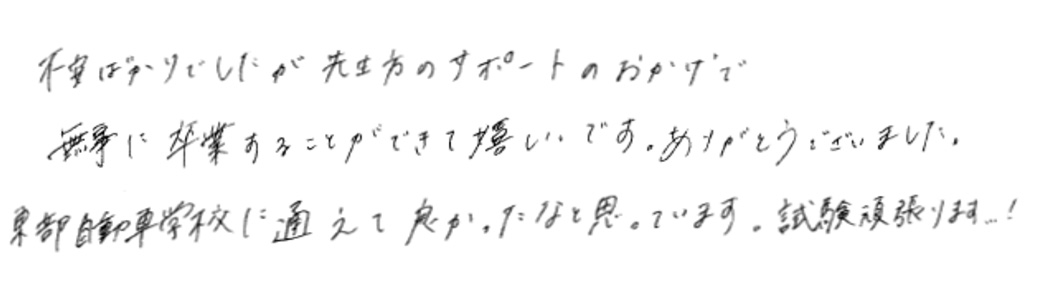 不安ばかりでしたが先生方のサポートのおかげで
無事に卒業することができて嬉しいです。ありがとうございました。
東部自動車学校に通えて良かったなと思っています。試験頑張ります…!